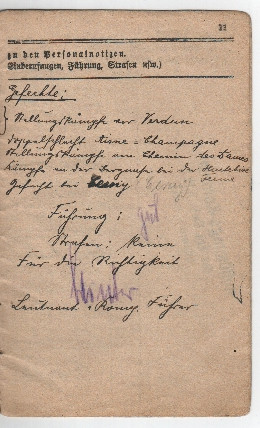 22
zu den Personalnotizen.
Einberufungen, Führung, Strafen usw.)
Gefechte:
Stellungskämpfe vor Verdun
Doppelschlacht Aisne-Champagne
Stellungskämpfe am Chemin des Dames
Kämpfe an der
Gefecht bei
Führung: gut
Strafen: keine
Für die Richtigkeit
Leutnant u. Komp. Führer